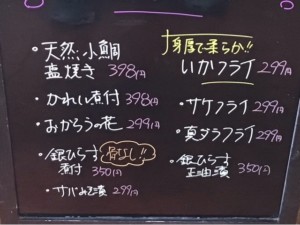 ・天然小鯛
塩焼き 398円
・かれい煮付 398円
・おからうの花 299円
・銀ひらす 骨なし!!
煮付 350円
・サバみそ漬 299円
身厚で柔らか!!
いかフライ 299円
・サケフライ 299円
・真ダラフライ 299円
・銀ひらす
正油漬 350円